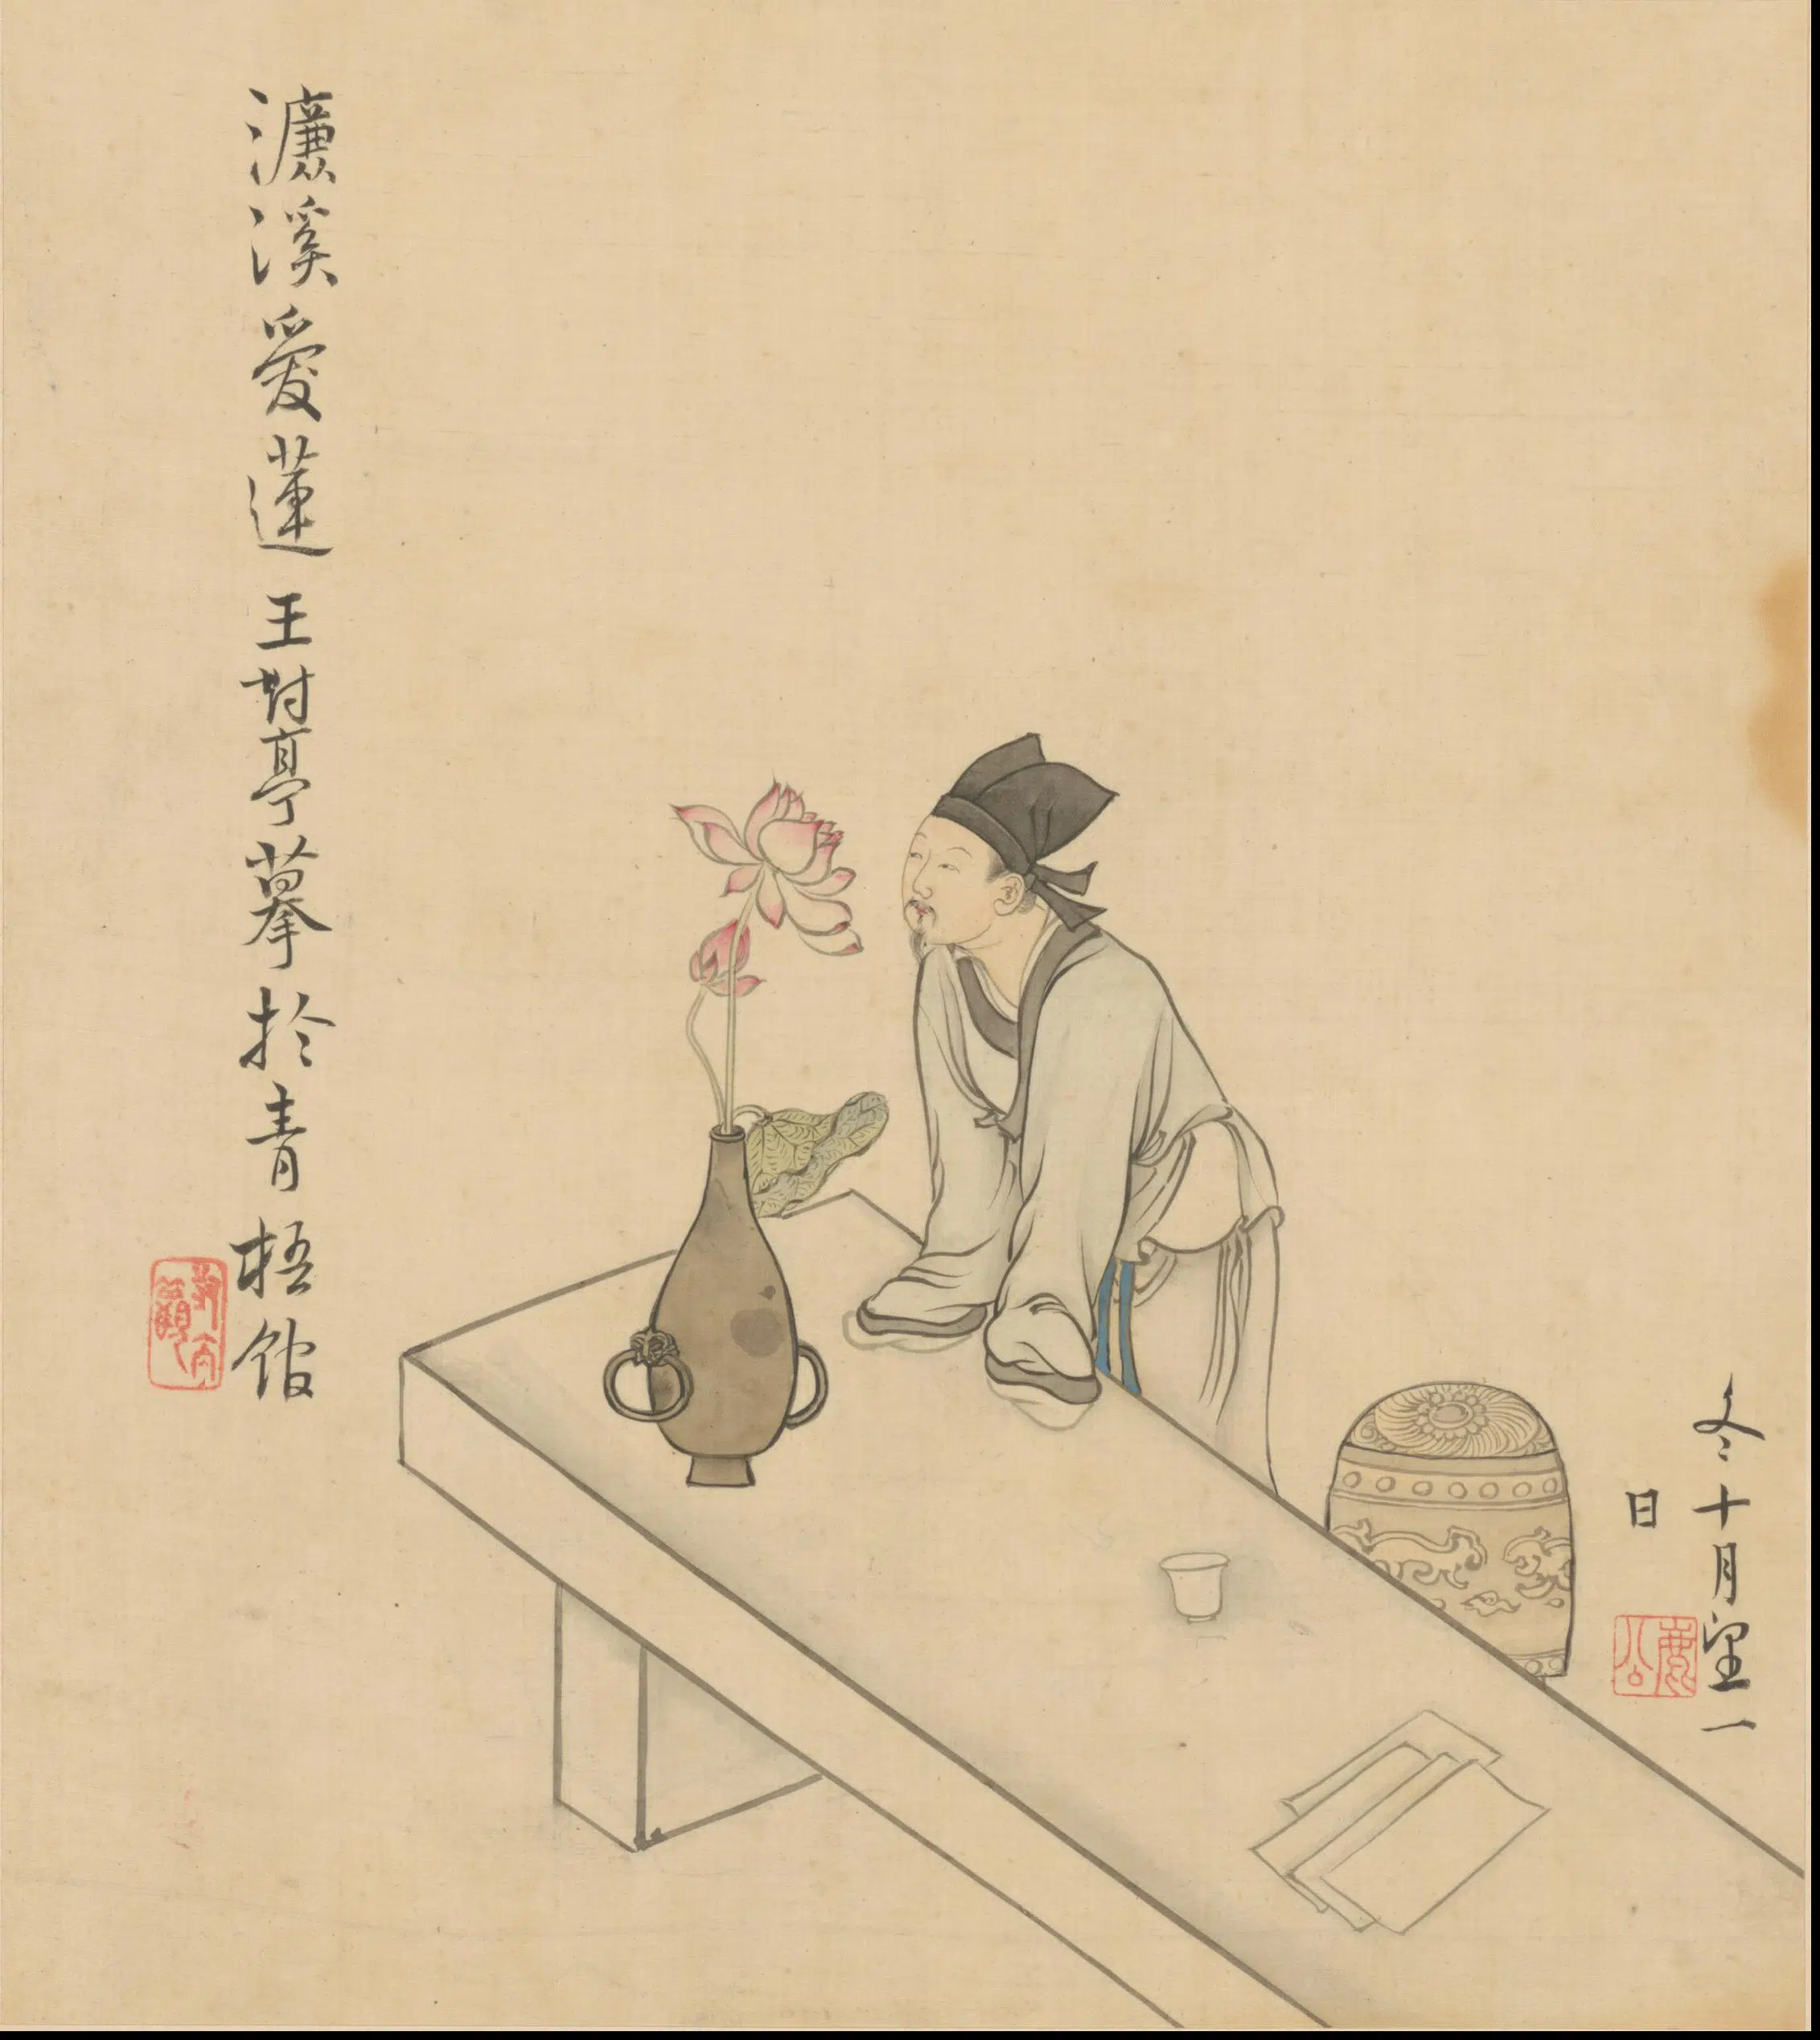 冬十月望一
日
鹿公
濂溪愛蓮 王亭摹於青梧館